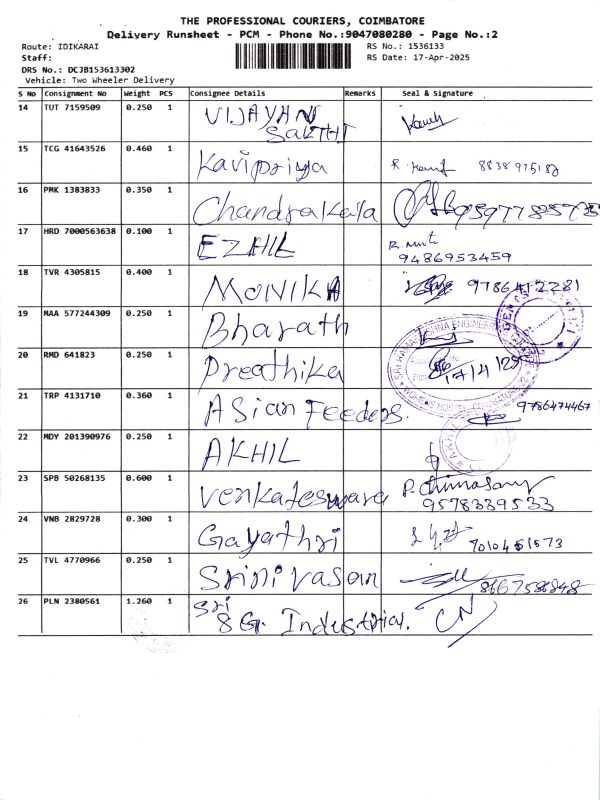 THE PROFESSIONAL COURIERS, COIMBATORE
Delivery Runsheet - PCM - Phone No.:9047080280 - Page No.:2
Route: IDIKARAI
RS No.: 1536133
Staff:
RS Date: 17-Apr-2025
DRS No.: DCJB153613302
Vehicle: Two Wheeler Delivery
S No Consignment No Weight PCS Consignee Details Remarks Seal & Signature
14 TUT 7159509 0.250 1 VIJAYAN
SAKTHI
15 TCG 41643526 0.460 1 Kavipriya
16 PMK 1383833 0.350 1 Chandrakala
17 HRD 7000563638 0.100 1 EZHIL
9486953459
18 TVR 4305815 0.400 1 MONIKA 9786412281
19 MAA 577244309 0.250 1 Bharath
20 RMD 641823 0.250 1 Preethika 17/4/25
21 TRP 4131710 0.360 1 Asian Feeders. 9786474467
22 MDY 201390976 0.250 1 AKHIL
23 SPB 50268135 0.600 1 Venkateswara
9578339533
24 VNB 2829728 0.300 1 Gayathri 7010451573
25 TVL 4770966 0.250 1 Srinivasan 8667586848
26 PLN 2380561 1.260 1 Sri
8 Gr. Industrial. CN